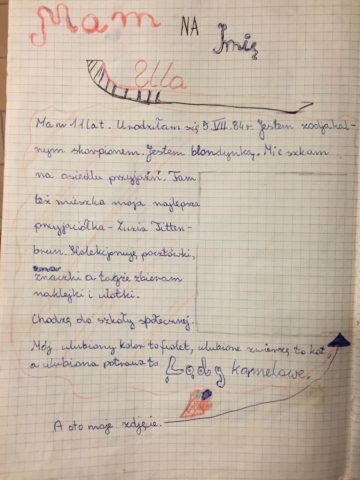 Mam NA Imię
Ulla
Mam 11 lat. Urodziłam się 9 VII. 84 r. Jestem zodjakal-
nym skorpionem. Jestem blondynką. Mieszkam
na osiedlu przyjaźń. Tam
też mieszka moja najlepsza
przyjaciółka - Zuzia Titten-
brun. Kolekcjonuję pocztówki,
znaczki a także zbieram
naklejki i ulotki.
Chodzę do szkoły społecznej.
Mój ulubiony kolor to fiolet, ulubione zwierzę to kot,
a ulubiona potrawa to Lody karmelowe.
A oto moje zdjęcie.